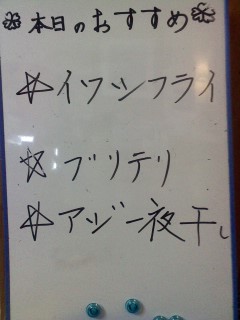 本日のおすすめ
イワシフライ
ブリテリ
アジ一夜干し